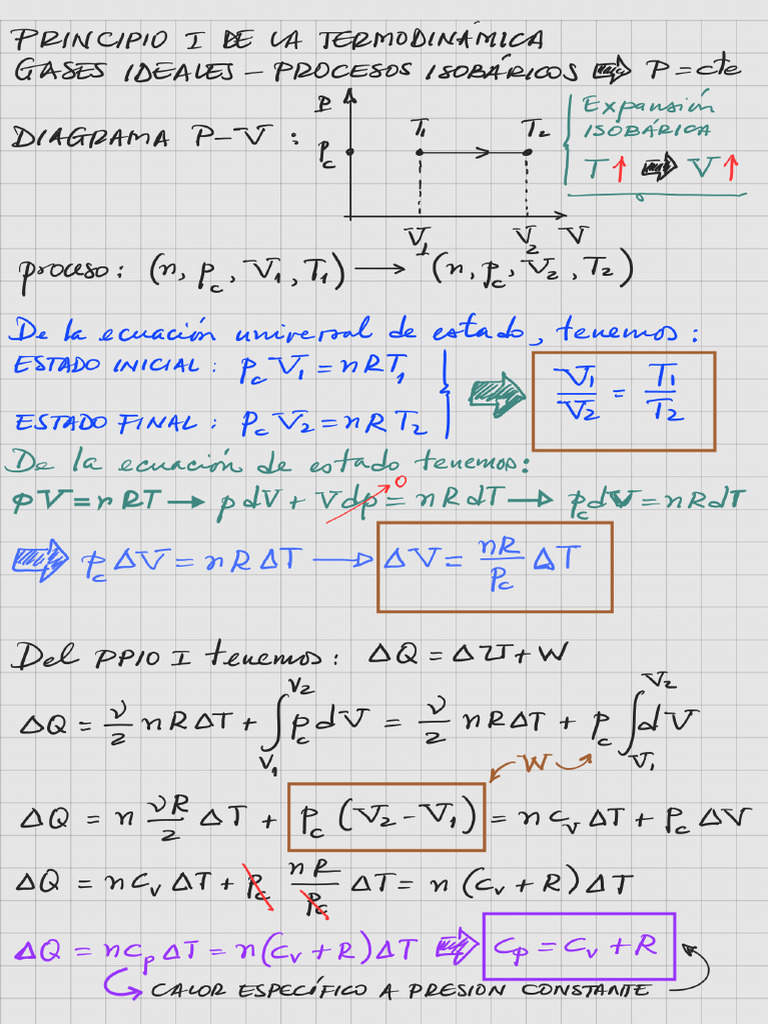 PRINCIPIO I DE LA TERMODINÁMICA
GASES IDEALES – PROCESOS ISOBÁRICOS ⇒ P = cte
DIAGRAMA P–V :
P
P_c
T₁
T₂
V₁
V₂
V
Expansión
ISOBÁRICA
T↑ ⇒ V↑
proceso: (n, p_c, V₁, T₁) → (n, p_c, V₂, T₂)
De la ecuación universal de estado, tenemos:
ESTADO INICIAL : p_c V₁ = nRT₁
ESTADO FINAL : p_c V₂ = nRT₂
⇒ V₁/V₂ = T₁/T₂
De la ecuación de estado tenemos:
pV = nRT → pdV + Vdp⁰ = nRdT → p_c dV = nRdT
⇒ p_c ΔV = nRΔT → ΔV = nR/p_c ΔT
Del PPIO I tenemos: ΔQ = ΔU + W
ΔQ = ν/2 nRΔT + ∫_{V₁}^{V₂} p_c dV = ν/2 nRΔT + p_c ∫_{V₁}^{V₂} dV
W
ΔQ = n νR/2 ΔT + p_c (V₂ – V₁) = n c_v ΔT + p_c ΔV
ΔQ = n c_v ΔT + p_c nR/p_c ΔT = n (c_v + R) ΔT
ΔQ = n c_p ΔT = n (c_v + R) ΔT ⇒ c_p = c_v + R
CALOR ESPECÍFICO A PRESION CONSTANTE